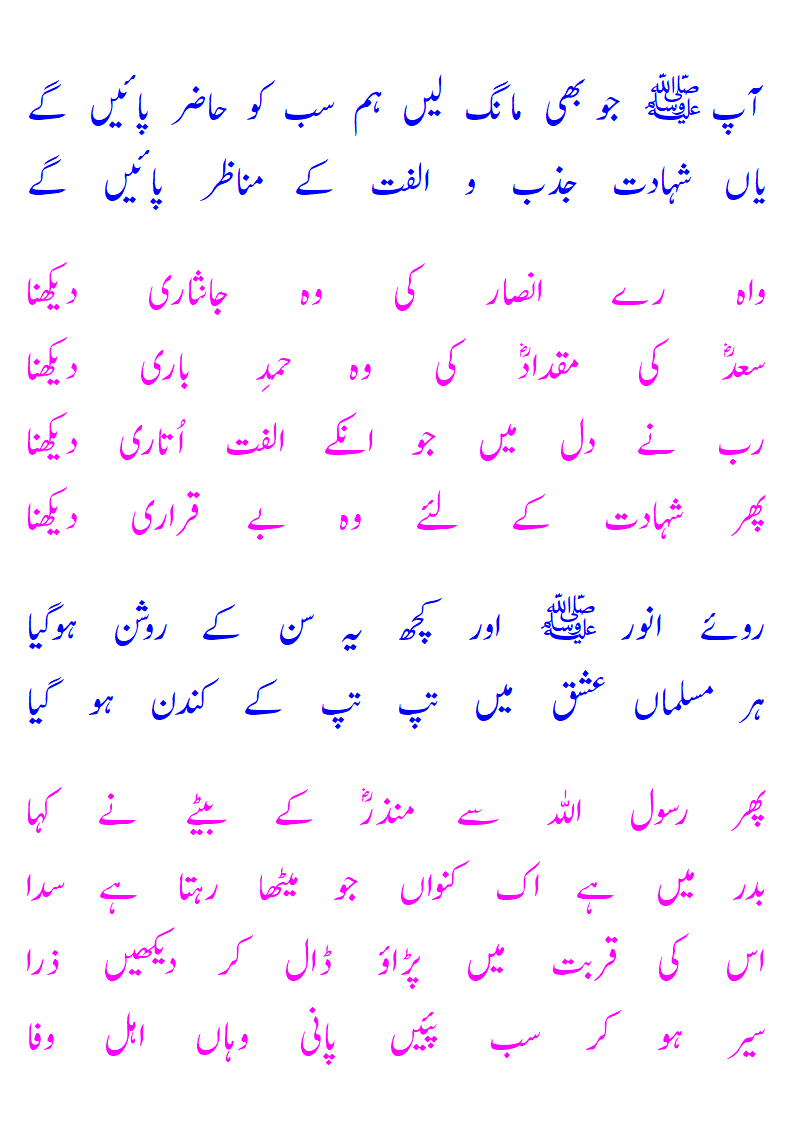 آپ ﷺ جو بھی مانگ لیں ہم سب کو حاضر پائیں گے
یاں شہادت جذب و الفت کے مناظر پائیں گے
واہ رے انصار کی وہ جانثاری دیکھنا
سعدؓ کی مقدادؓ کی وہ حمدِ باری دیکھنا
رب نے دل میں جو انکے الفت اُتاری دیکھنا
پھر شہادت کے لئے وہ بے قراری دیکھنا
روئے انور ﷺ اور کچھ یہ سن کے روشن ہوگیا
ہر مسلماں عشق میں تپ تپ کے کندن ہو گیا
پھر رسول اللہ سے منذرؓ کے بیٹے نے کہا
بدر میں ہے اک کنواں جو میٹھا رہتا ہے سدا
اس کی قربت میں پڑاؤ ڈال کر دیکھیں ذرا
سیر ہو کر سب پئیں پانی وہاں اہل وفا